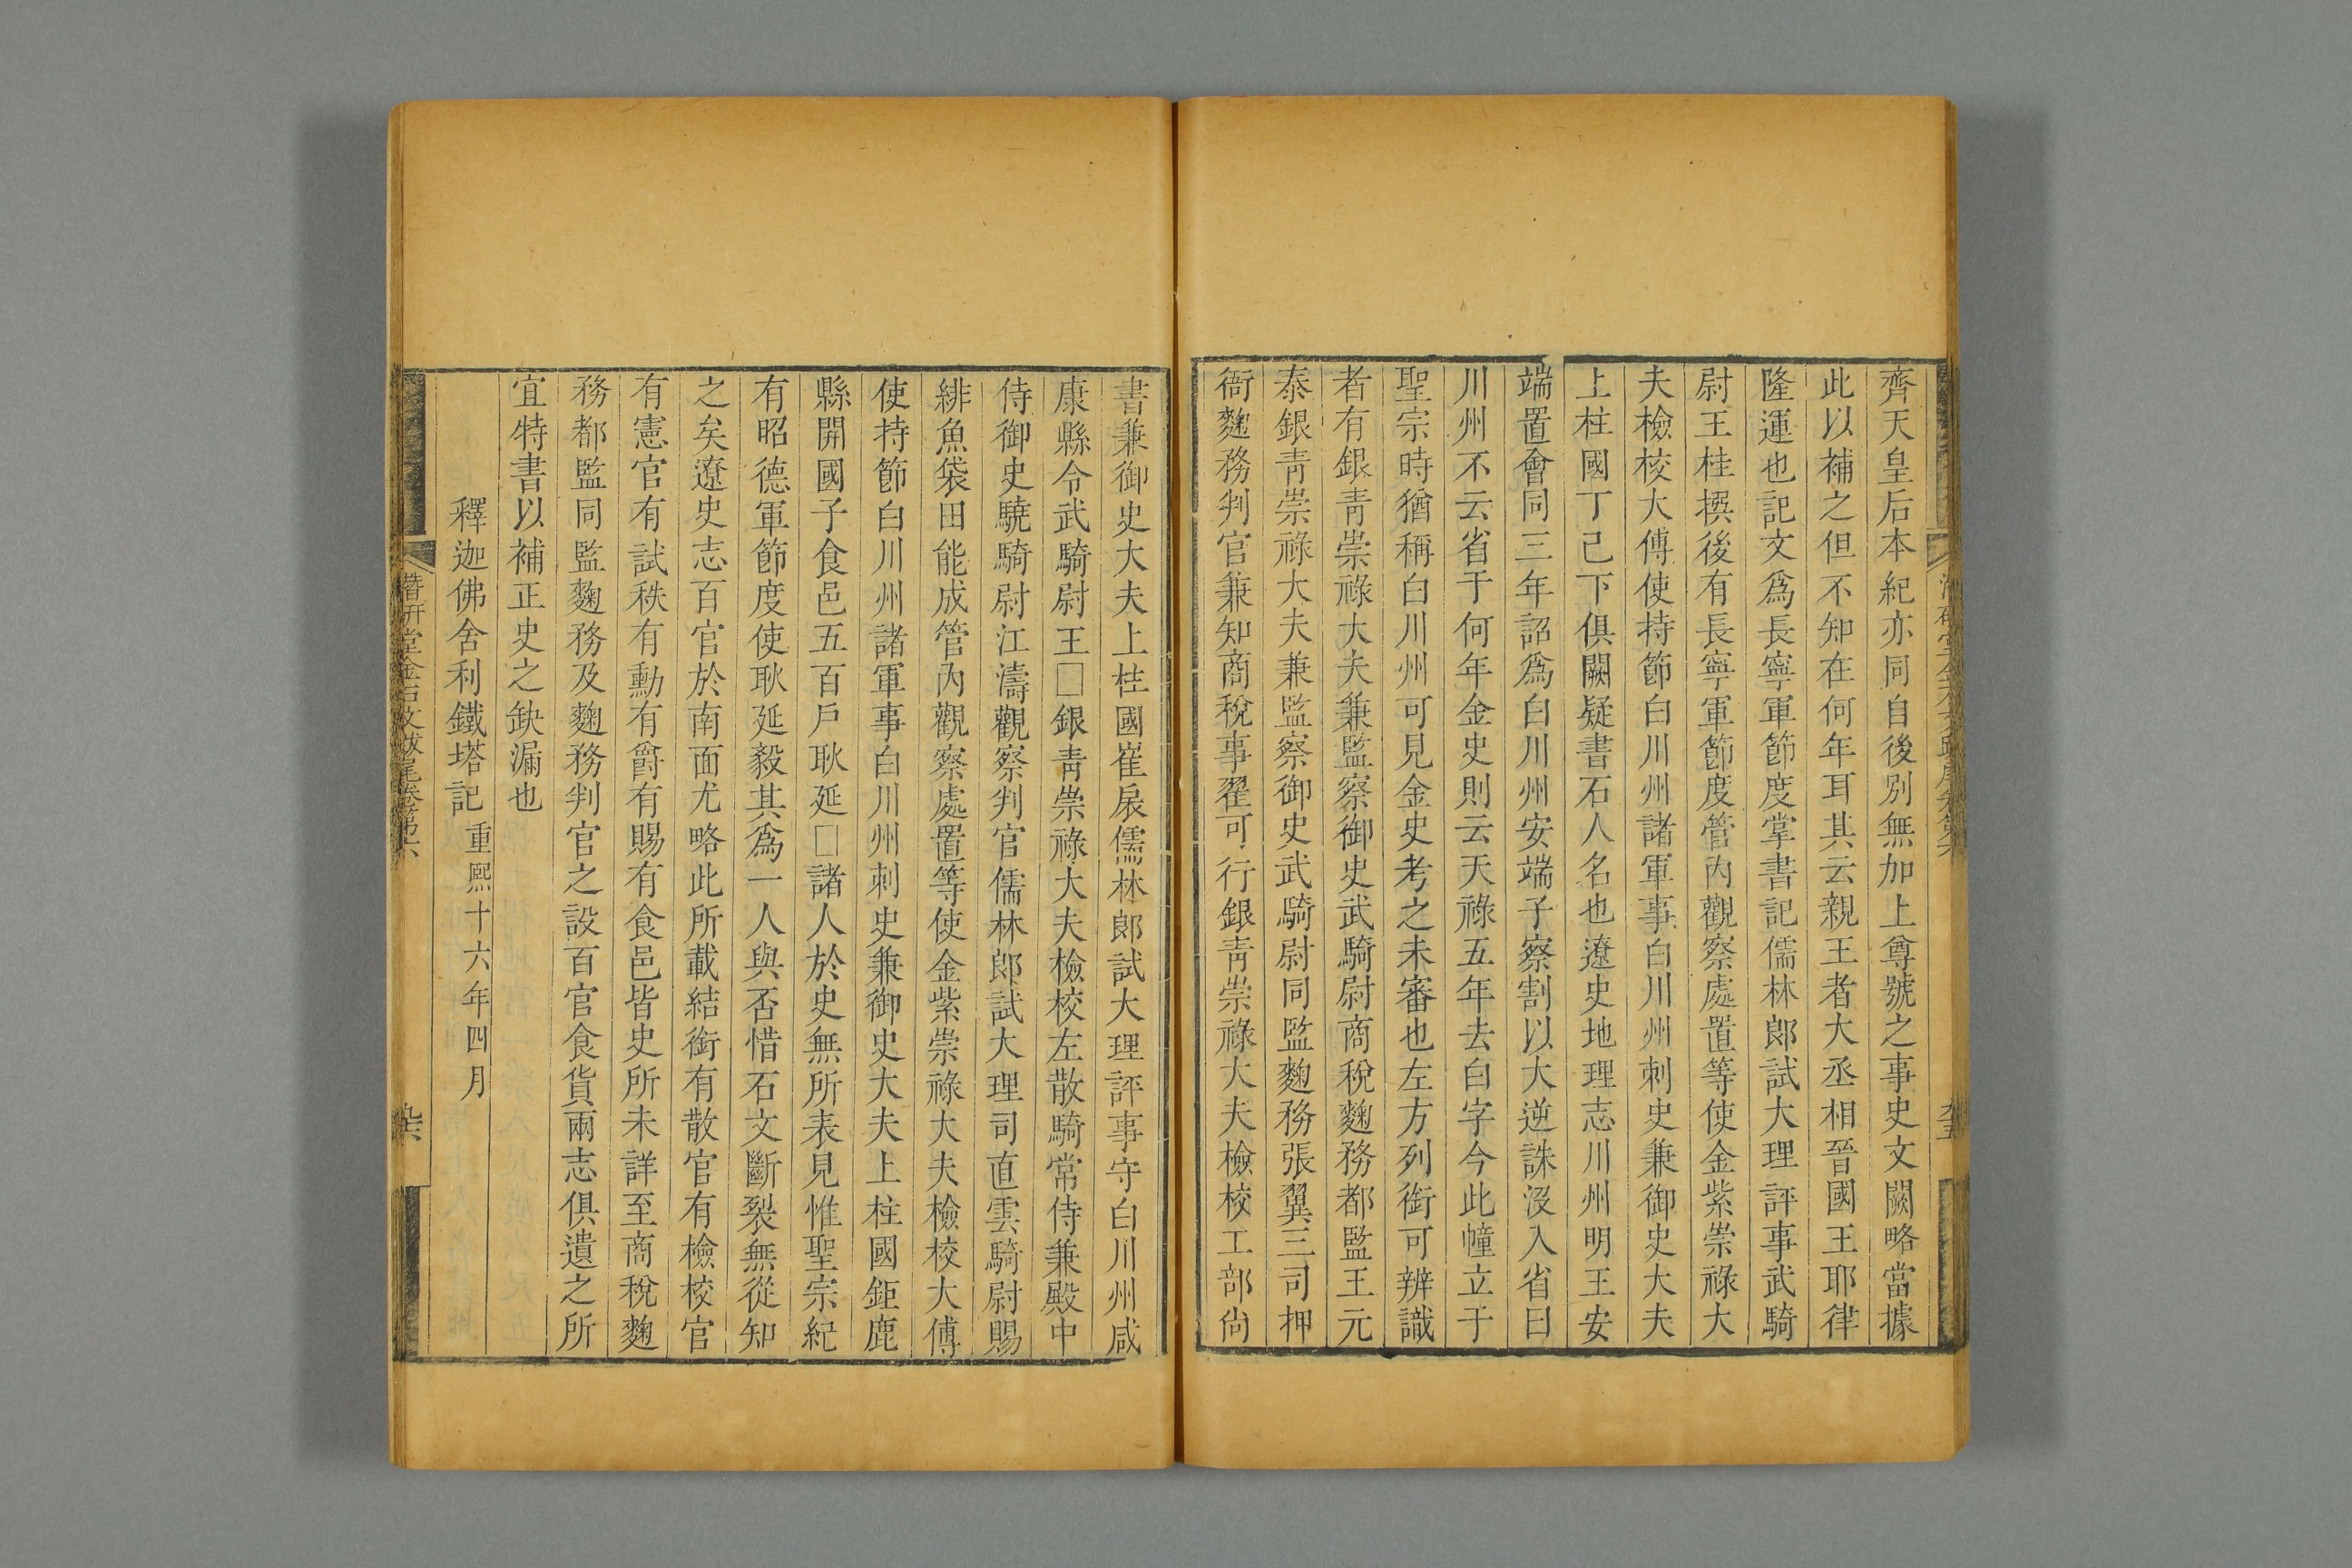 齊天皇后本紀亦同自後別無加上尊號之事史文闕略當據
此以補之但不知在何年耳其云親王者大丞相晉國王耶律
隆運也記文爲長寧軍節度掌書記儒林郎試大理評事武騎
尉王桂撰後有長寧軍節度管內觀察處置等使金紫崇祿大
夫檢校大傅使持節白川州諸軍事白川州刺史兼御史大夫
上柱國丁己下俱闕疑書石人名也遼史地理志川州明王安
端置會同三年詔爲白川州安端子察割以大逆誅沒入省曰
川州不云省于何年金史則云天祿五年去白字今此幢立于
聖宗時猶稱白川州可見金史考之未審也左方列銜可辨識
者有銀青崇祿大夫兼監察御史武騎尉商稅麴務都監王元
泰銀青崇祿大夫兼監察御史武騎尉同監麴務張翼三司押
衙麴務判官兼知商稅事翟可行銀青崇祿大夫檢校工部尙
書兼御史大夫上柱國崔扆儒林郎試大理評事守白川州咸
康縣令武騎尉王□銀青崇祿大夫檢校左散騎常侍兼殿中
侍御史驍騎尉江濤觀察判官儒林郎試大理司直雲騎尉賜
緋魚袋田能成管內觀察處置等使金紫崇祿大夫檢校大傅
使持節白川州諸軍事白川州刺史兼御史大夫上柱國鉅鹿
縣開國子食邑五百戶耿延□諸人於史無所表見惟聖宗紀
有昭德軍節度使耿延毅其爲一人與否惜石文斷裂無從知
之矣遼史志百官於南面尤略此所載結銜有散官有檢校官
有憲官有試秩有勳有爵有賜有食邑皆史所未詳至商稅麴
務都監同監麴務及麴務判官之設百官食貨兩志俱遺之所
宜特書以補正史之缺漏也
釋迦佛舍利鐵塔記 重熙十六年四月
潛硏堂金石文跋尾卷第六